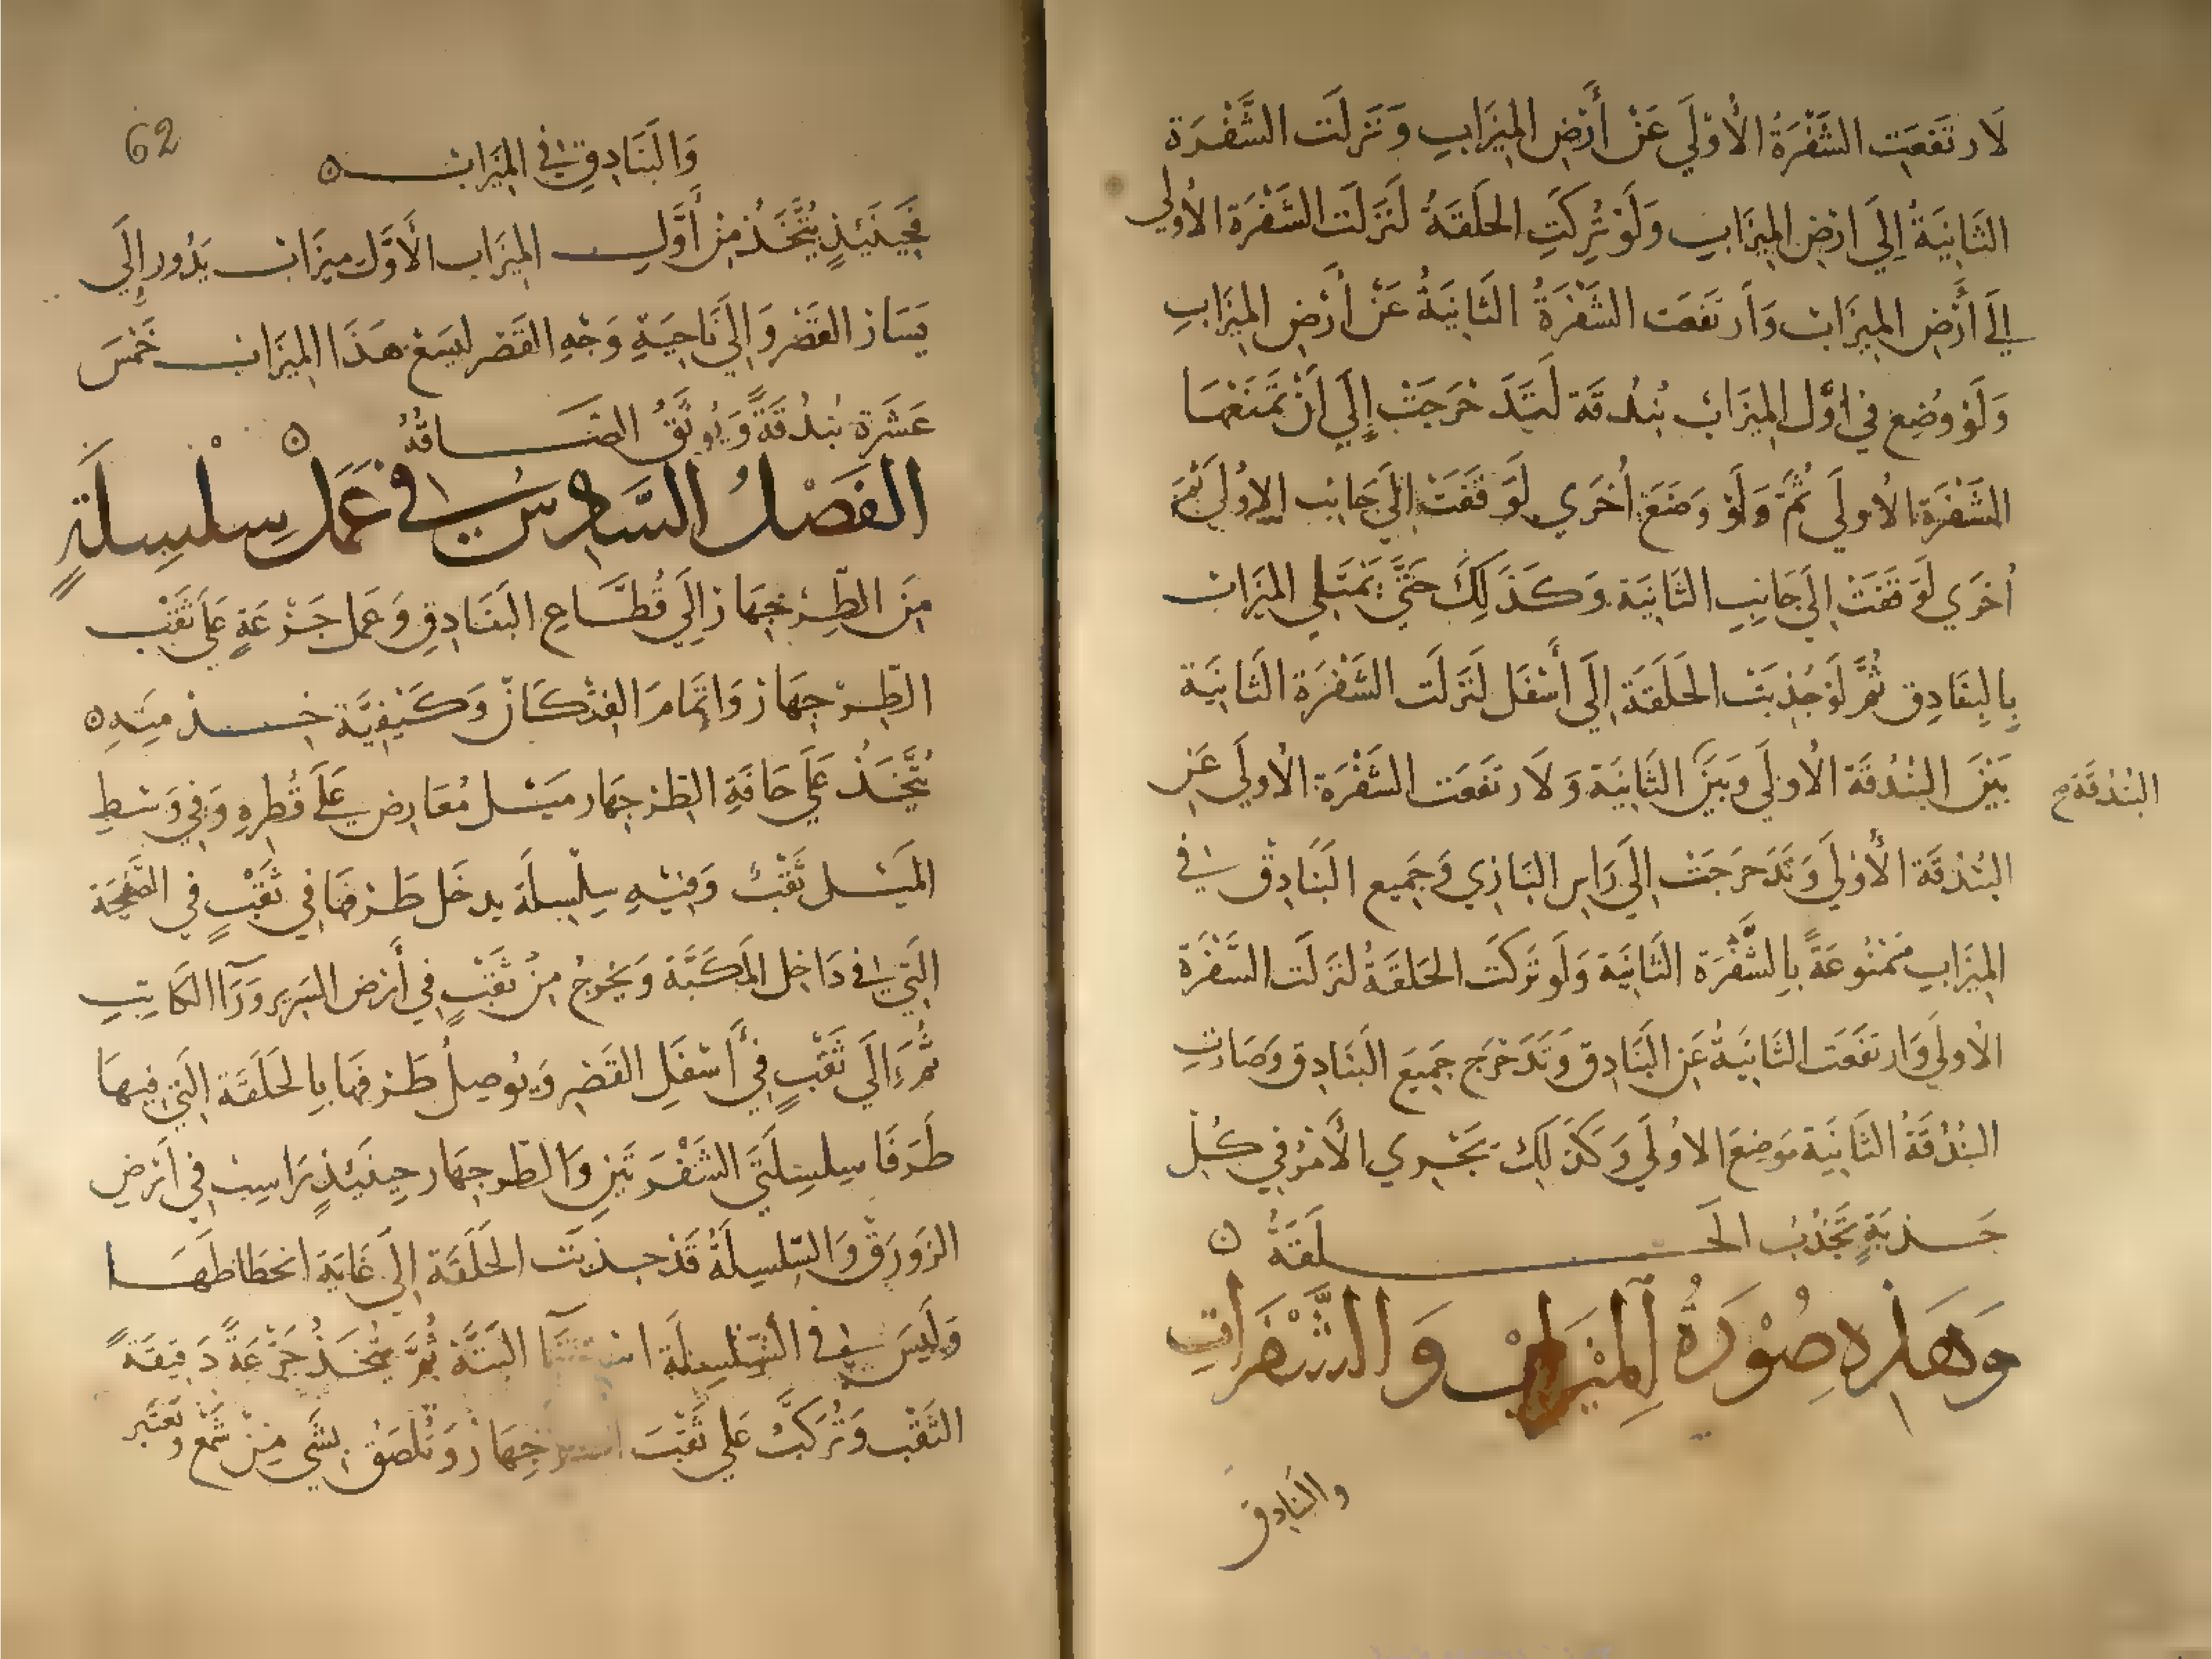 لَارتَفَعَتِ الشَّفْرَةُ الأُوْلَي عَنْ أَرْضِ المِيزَابِ وَنَزَلَت الشَّفْرَة
الثَانِيَةُ إِلَي ارْضِ المِيزَابِ وَلَوْ تُرِكَتِ الحَلَقَةُ لَنَزَلَت الشَفْرَة الأُولي
إلَي أَرْضِ المِيزَابْ وَارْتَفَعَت الشَّفْرَةُ الثَانِيَةُ عَنْ أَرْضِ المِيزَابِ
وَلَوْ وُضِعَ في اوَّل المِيزَابْ بُنْدُقَة لَتَدَحْرَجَتْ إِلَي أَنْ تَمْنَعهَا
الشَفْرَة الأُولَي ثُمَّ وَلَوْ وَضَعَ أُخرَي لَوَقَفَتْ إِلَي جَانِب الأُولَي ثم
أخرَي لَوَقَفَتْ إِلَي جَانِبِ الثَانِيَة وَكَذَلِكَ حَتَّي يَمْتَلي المِيزَابْ
بِالبنَادِقِ ثُمَّ لَوْ جُذِبَتْ الحَلَقَة إِلَي أَسْفَل لَنَزَلَت الشَفْرَة الثَانِيَة
بَيْنَ البُنْدُقَة الأُولَي وَبَيَنَ الثَانِيَة وَلَارتَفَعَت الشَفْرَة الأُولَي عَنِ
البُنْدقَة
البُنْدُقَة الأُولَي وَتَدَحرَجَتْ إِلَي رَاسِ البَازِي وَجَمِيع البَنَادِقْ في
المِيزَابِ مَمْنُوعَةً بِالشَّفْرَة الثَانِيَة وَلَو تركَتَ الحَلقَةُ لنَزلَت الشَفْرَة
الأُولي وَارتَفَعَت الثَانِيَةُ عَنِ البَنَادِق وَتَدَحْرَج جَمِيعَ البَنَادِق وَصَارَتِ
البُنْدُقَةُ الثَانِيَة مَوضِعَ الاُولَي وَكَذَلِكَ يَجْرِي الأَمْرُ في كُلِ
جَذبَةٍ تَجْذُبُ الحَلَقَةُ
وَهَذِهِ صُوْرَةُ المِيْزَابْ وَالشَّفَراتِ
والبَنَادق
62
وَالبَنَادِقِ في المِيَزابْ
فَحِينَئِذٍ يُتَّخَذُ مِنْ أَوَّلِ المِيزَاب الأَوَّل مِيزَابْ يَدُور إِلَي
يَسَار القَصْر وَإِلَي نَاحِيَةِ وَجْهِ القَصْر ليَسَعْ هَذَا المِيَزابْ خَمْسَ
عَشَرَة بُنْدُقَةً وَيُوثَّقُ الصَاقُهُ
الفَصْلُ السَّادِسُ في عَمَلِ سِلْسِلَةٍ
مِنَ الطِرْجِهَار إِلَي قُطَّاعِ البَنَادِقِ وَعَمَلِ جَزْعَةٍ عَلَي ثَقْب
الطِرْجِهَار وَاتِمَام الفنْكَان وَكَيْفِيَّة خِدْمتِهِ
يُتَّخَذُ عَلَي حَافَةِ الطرْجِهَار مَيْل مُعَارِض عَلَي قُطرِهِ وَفي وَسَطِ
المَيْل ثَقْبٌ وَفِيْهِ سِلْسِلَة يدخَل طَرْفهَا في ثَقْبٍ في الصَفِيحَة
الَتِي في دَاخِلِ المَكَبَّة وَيَخْرجُ مِنْ ثَقْبٍ في أَرْض السَرِير وَرَآا الكَاتِبِ
ثُمَّ إِلَي ثَقْبٍ فيْ أَسْفَلِ القَصْر وَيُوصِلُ طَرْفهَا بِالحَلَقَة التِي فِيهَا
طَرَفَا سِلْسِلَتَي الشَفْرَتَيْنِ وَالطرجِهَار حِينَئِذٍ رَاسِبْ في أَرْضِ
الزورَقْ وَالسِلْسِلَةُ قَدْ جَذبَت الحَلَقَة إِلَي غَايَة انحَطَاطهَا
وَلَيسَ في السِلْسِلَة البَتَّة ثُمَّ يُتَخَذُ جَزْعَةً دَقِيقَةً
الثَقْب وَتُرَكَّبُ عَلَي ثَقْبَ الطرجِهَار وَتُلصَقْ بِشَي مِنْ شَمْع وَتعتبر